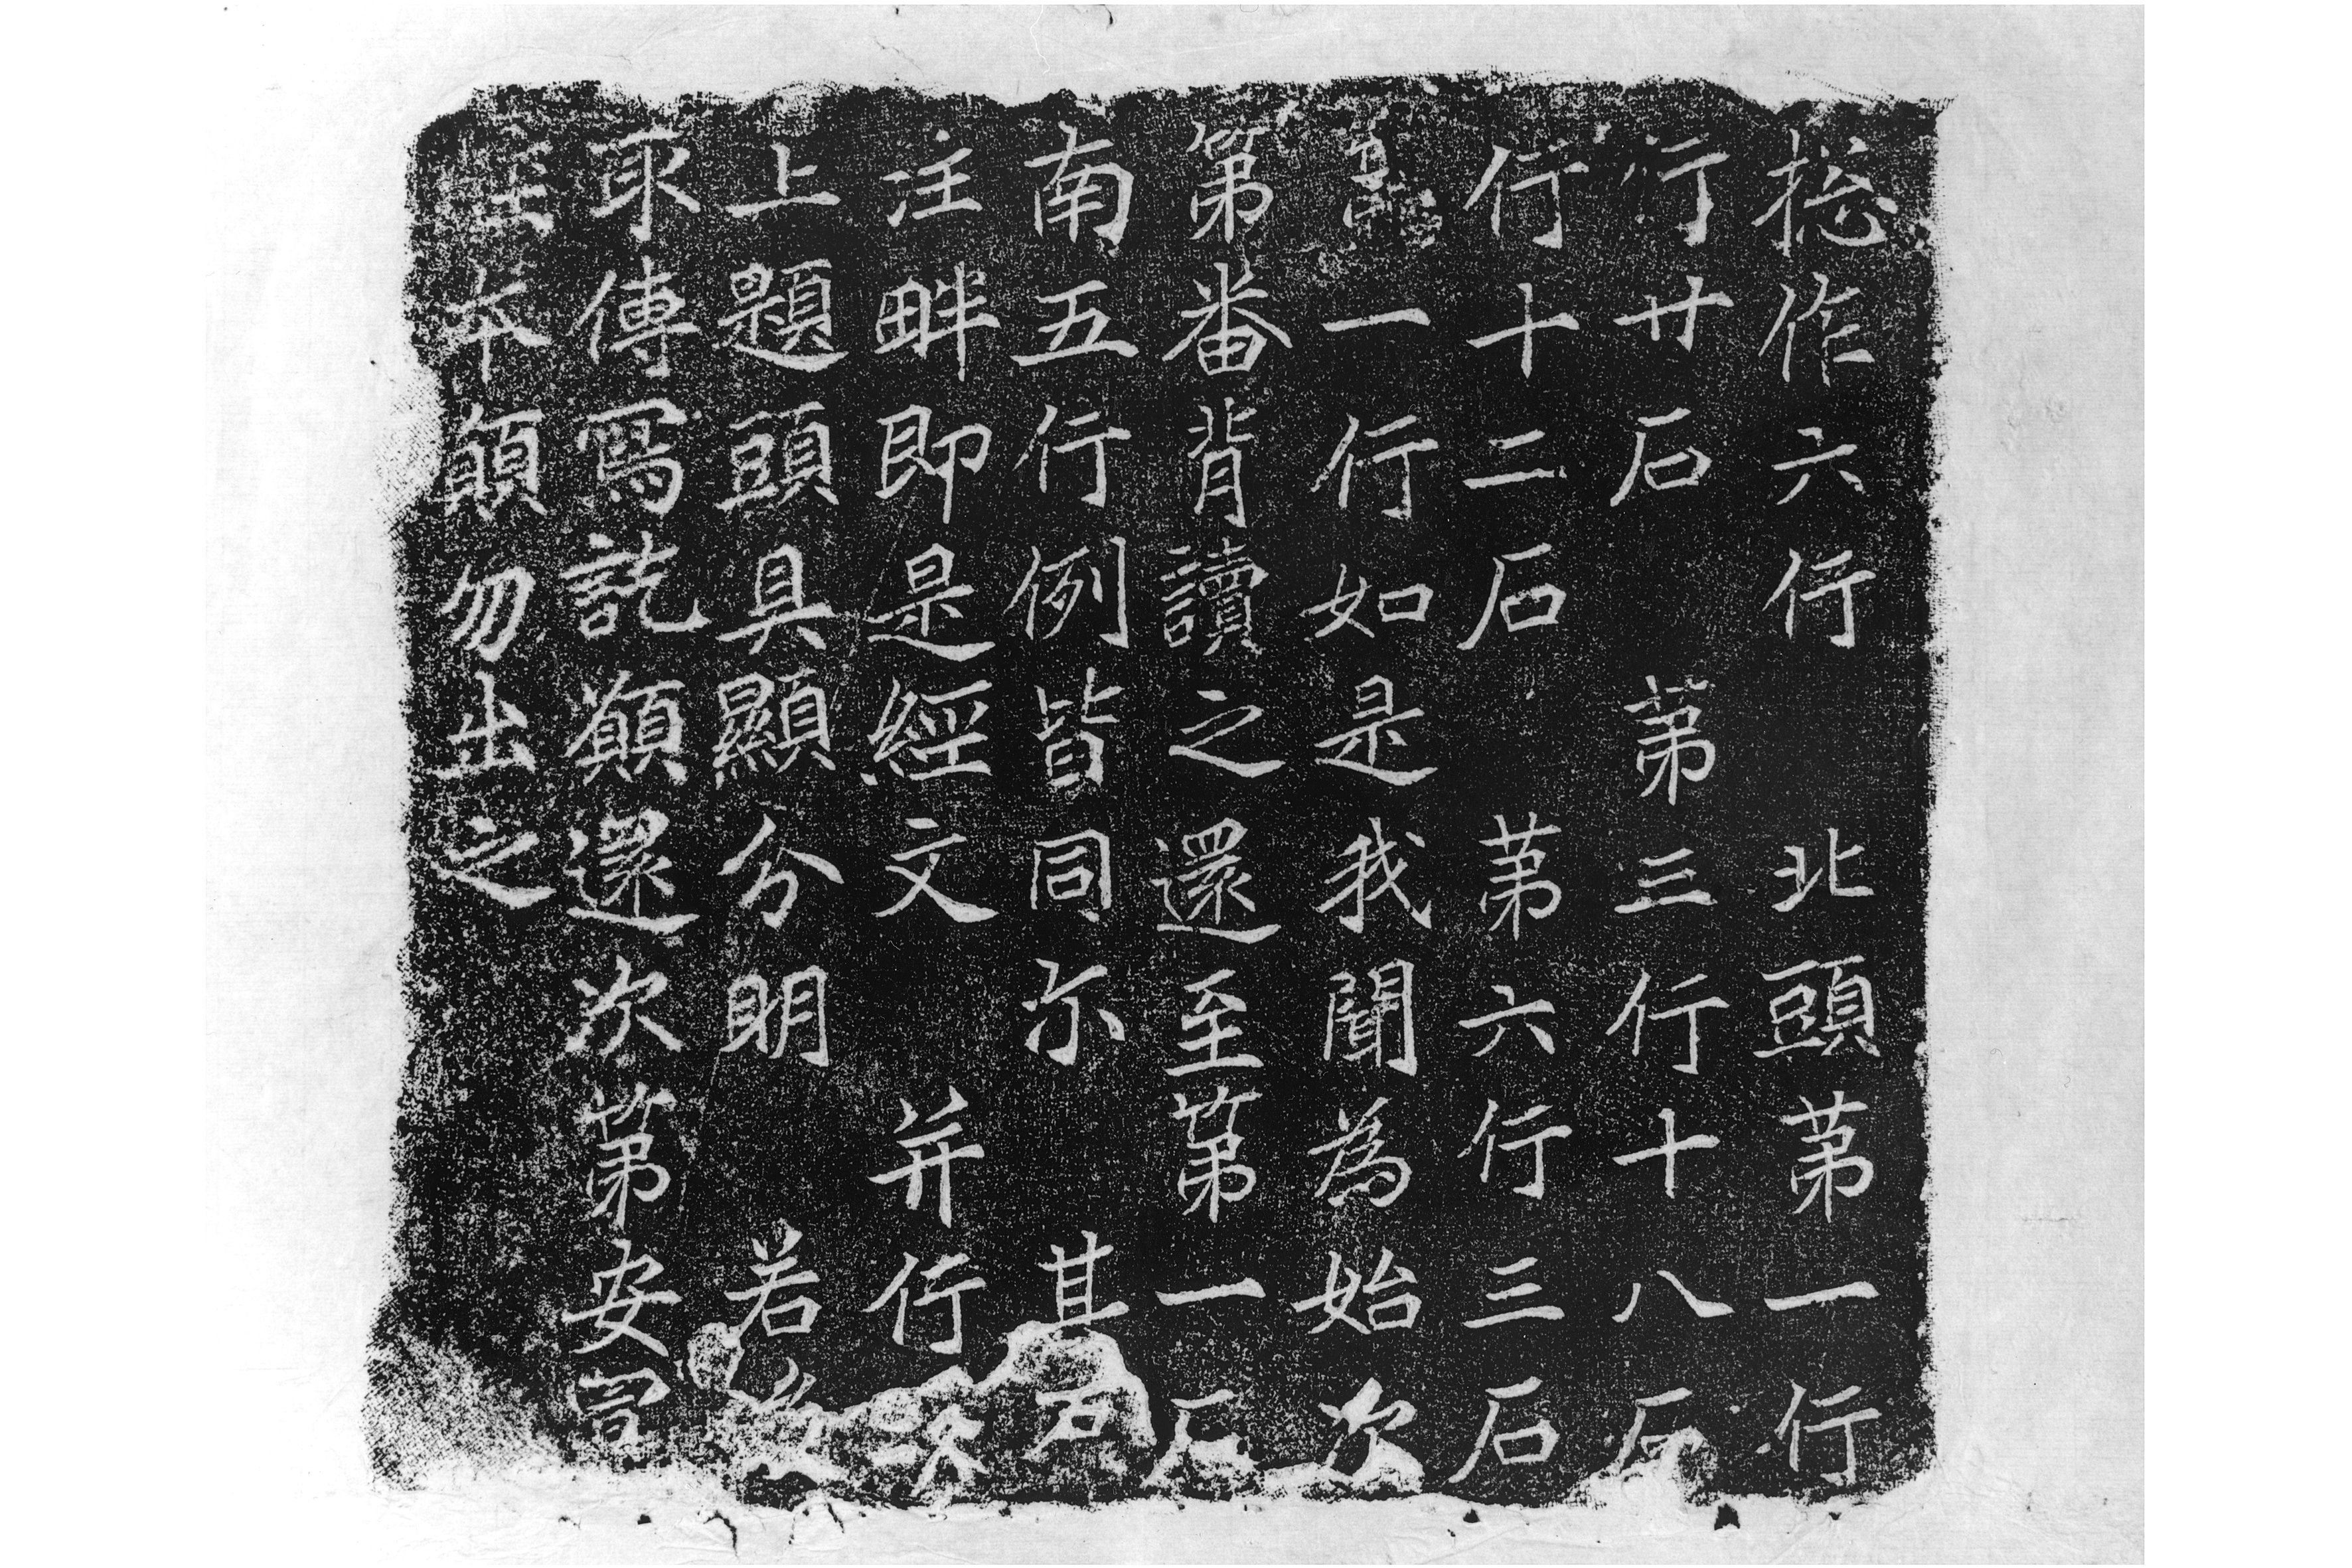 捴作六行　北頭苐一行
行廿石　苐三行十八石
行十二石　苐六行三石
一行如是我聞為始次
第番背讀之還至第一石
南五行例皆同尓　其石
注畔即是經文　并行次
上題頭具顯分明　若後
取傳寫訖願還次第安
本願勿出之